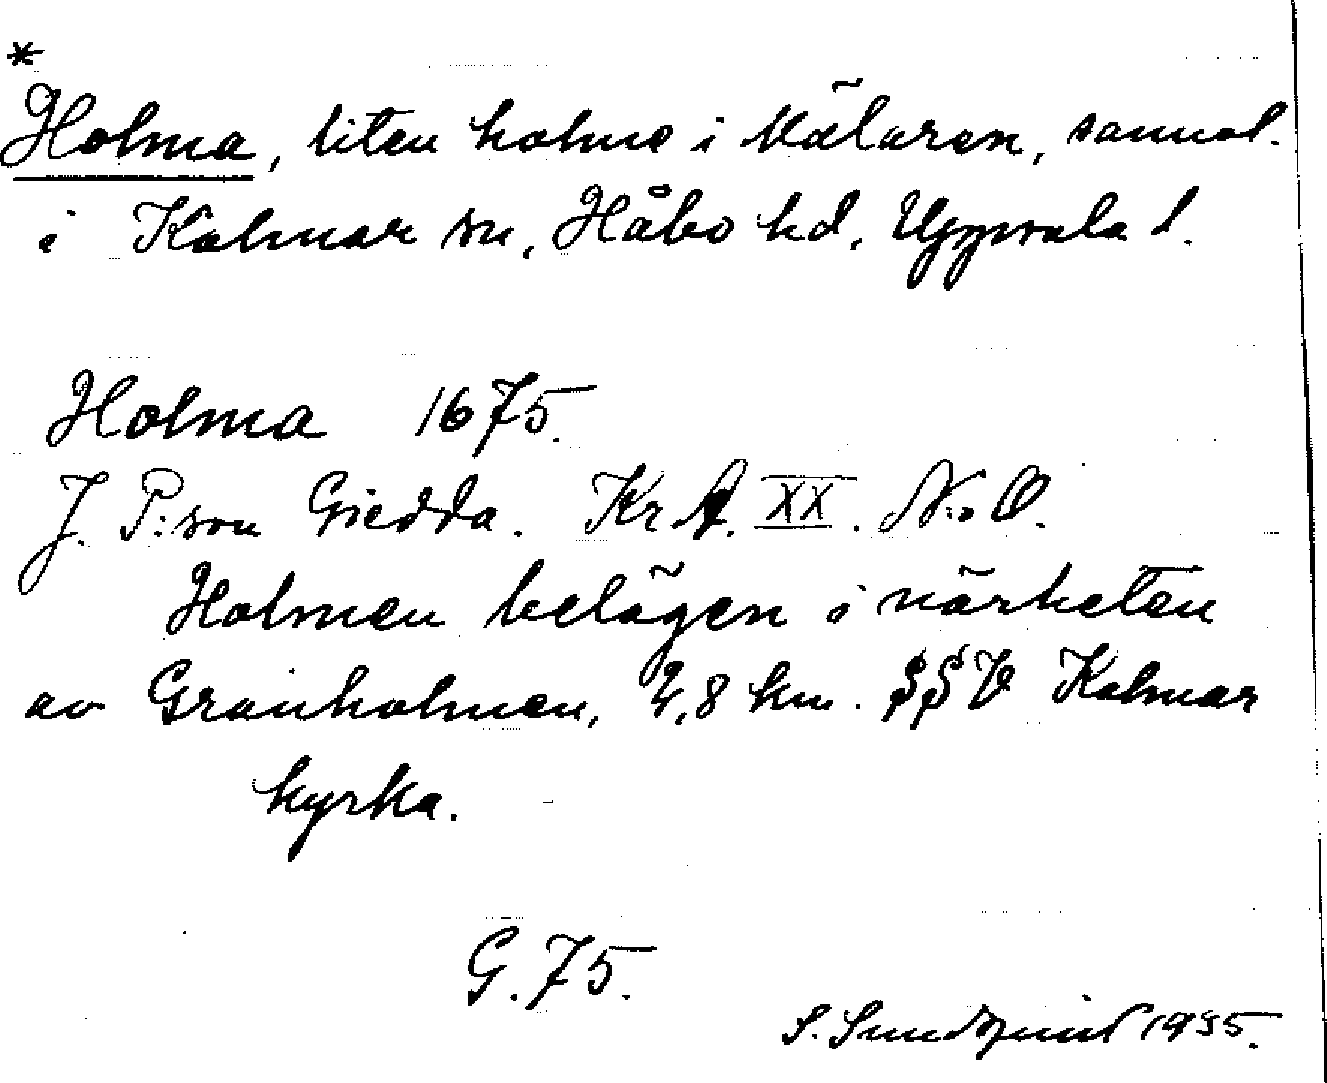 *
Holma, liten holme i Mälaren, sannol.
i Kalmar sn, Håbo hd, Uppsala l.
Holma 1675.
J. P:son Giedda. KrA. XX. N:o 0.
Holmen belägen i närheten
av Gränholmen, 4,8 km. SSV Kalmar
kyrka.
G. 75.
S. Sundquist 1935.